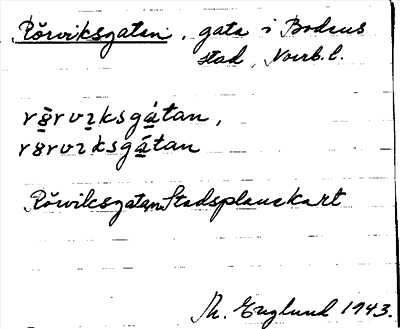 Rörviksgatan, gata i Bodens
stad, Norrb. l.
rö̀rvıksgátan,
r8rvıksgátan
Rörviksgatan Stadsplanekart
Th. Englund 1943.